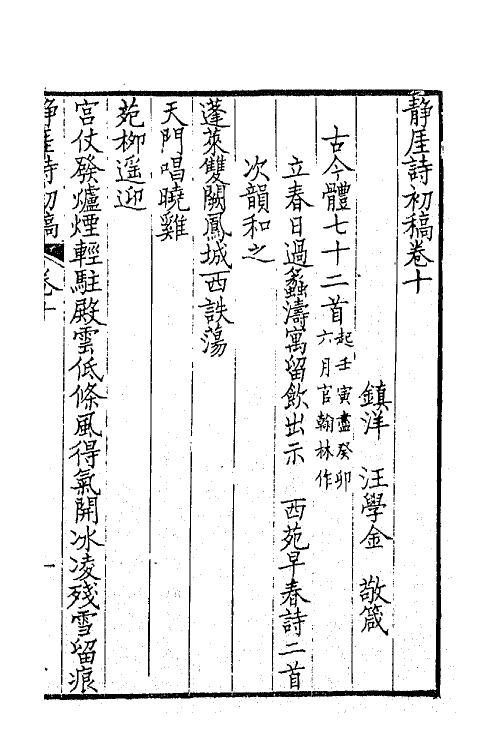 静厓詩初稿卷十
鎮洋　汪學金　敬箴
古今體七十二首起壬寅盡癸卯六月官翰林作
立春日過蠡濤寓留飲出示　西苑早春詩二首
次韻和之
蓬萊雙闕鳳城西詄蕩
天門唱曉雞
苑柳遥迎
宮仗發爐煙輕駐殿雲低條風得氣開冰凌殘雪留痕
静厓詩初稿　卷十　一